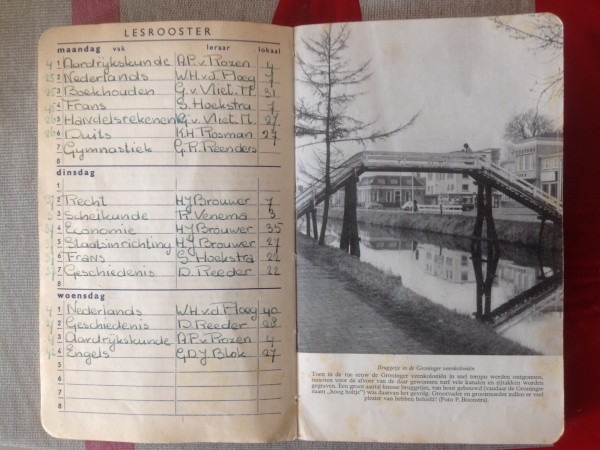 LESROOSTER
maandag vak leraar lokaal
1 Aardrijkskunde A.P. v. Rozen 4
2 Nederlands W.H. v.d. Ploeg 7
3 Boekhouden G. v. Vliet. M. 31
4 Frans S. Hoekstra 7
5 Handelsrekenen G. v. Vliet. M. 27
6 Duits K.H. Rosman 27
7 Gymnastiek G.R. Reenders
8
dinsdag
1
2 Recht H.J. Brouwer 7
3 Scheikunde R. Venema 3
4 Economie H.J. Brouwer 35
5 Staatsinrichting H.J. Brouwer 27
6 Frans S. Hoekstra 22
7 Geschiedenis D. Reeder 22
8
woensdag
1 Nederlands W.H. v.d. Ploeg 40
2 Geschiedenis D. Reeder 28
3 Aardrijkskunde A.P. v. Rozen 4
4 Engels G.D.Y. Blok 27
5
6
7
8
Bruggetje in de Groninger veenkoloniën
Toen in de 19e eeuw de Groninger veenkoloniën in snel tempo werden ontgonnen,
moesten voor de afvoer van de daar gewonnen turf vele kanalen en zijtakken worden
gegraven. Een groot aantal knusse bruggetjes, van hout gebouwd (vandaar de Groninger
naam „hoog holtje") was daarvan het gevolg. Grootvader en grootmoeder zullen er veel
plezier van hebben beleefd! (Foto P. Boonstra).